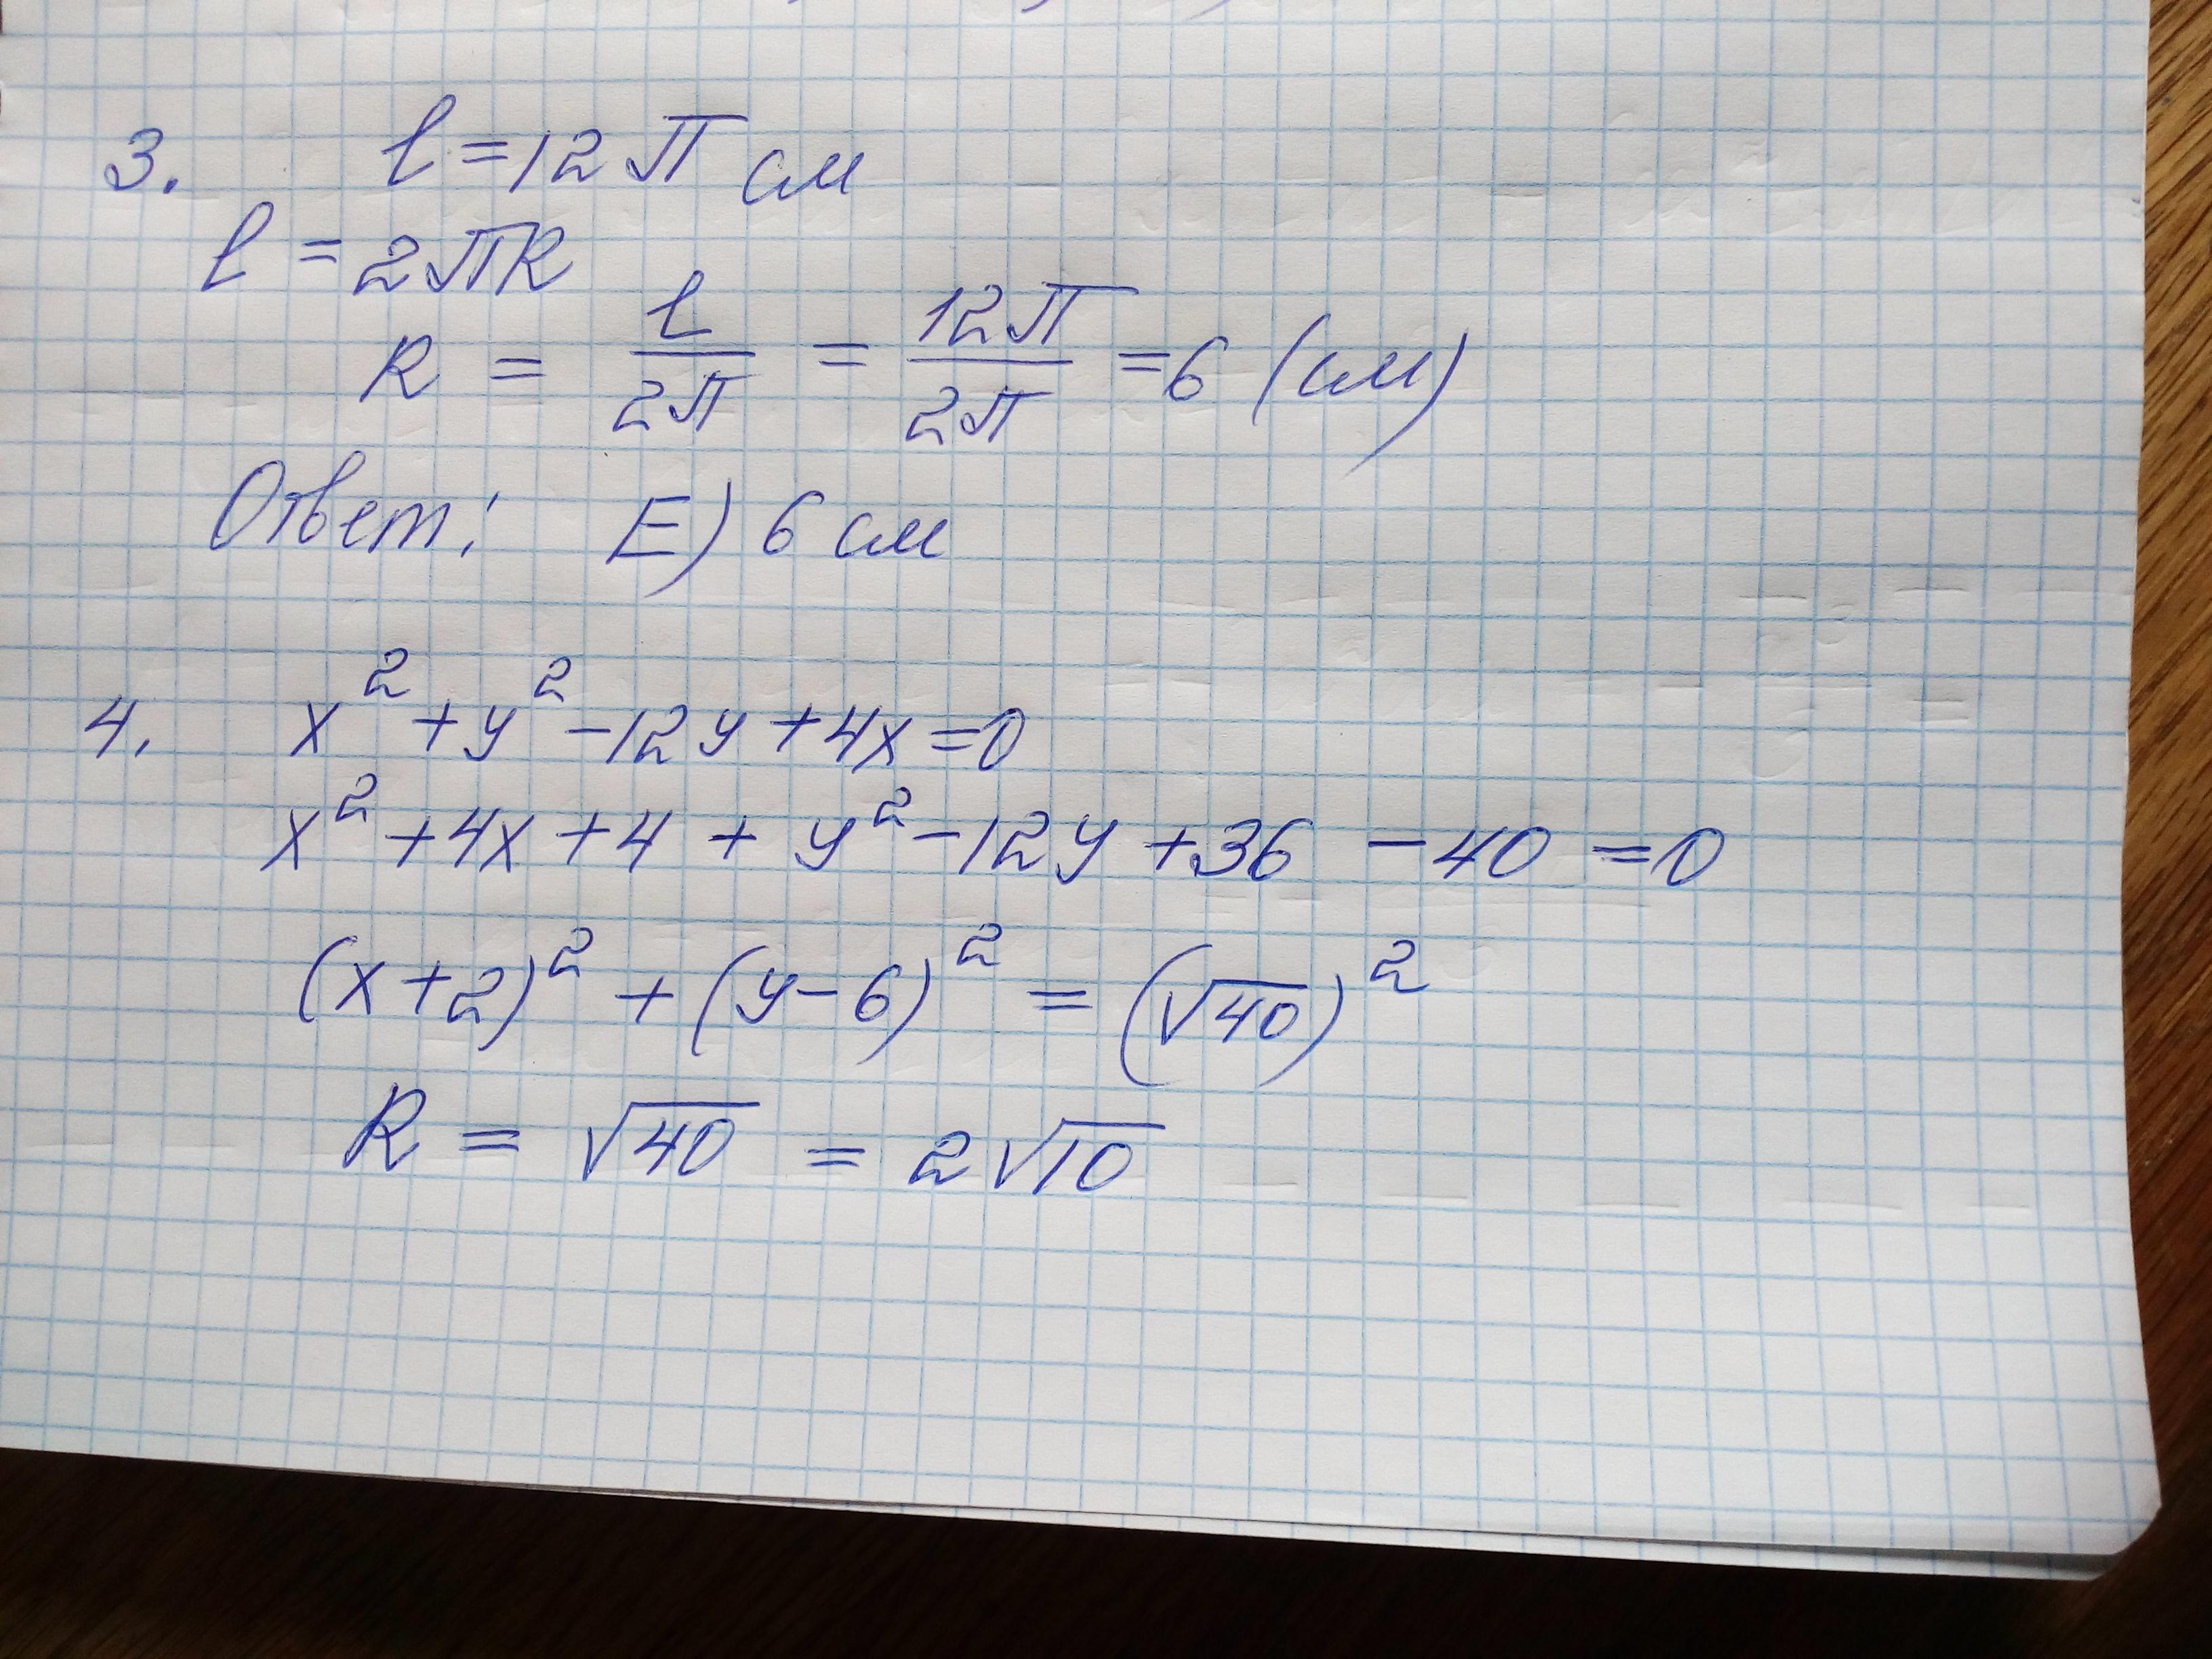 3. l = 12π см
l = 2πR
R = l/2π = 12π/2π = 6 (см)
Ответ: E) 6 см
4. x² + y² - 12y + 4x = 0
x² + 4x + 4 + y² - 12y + 36 - 40 = 0
(x + 2)² + (y - 6)² = (√40)²
R = √40 = 2√10